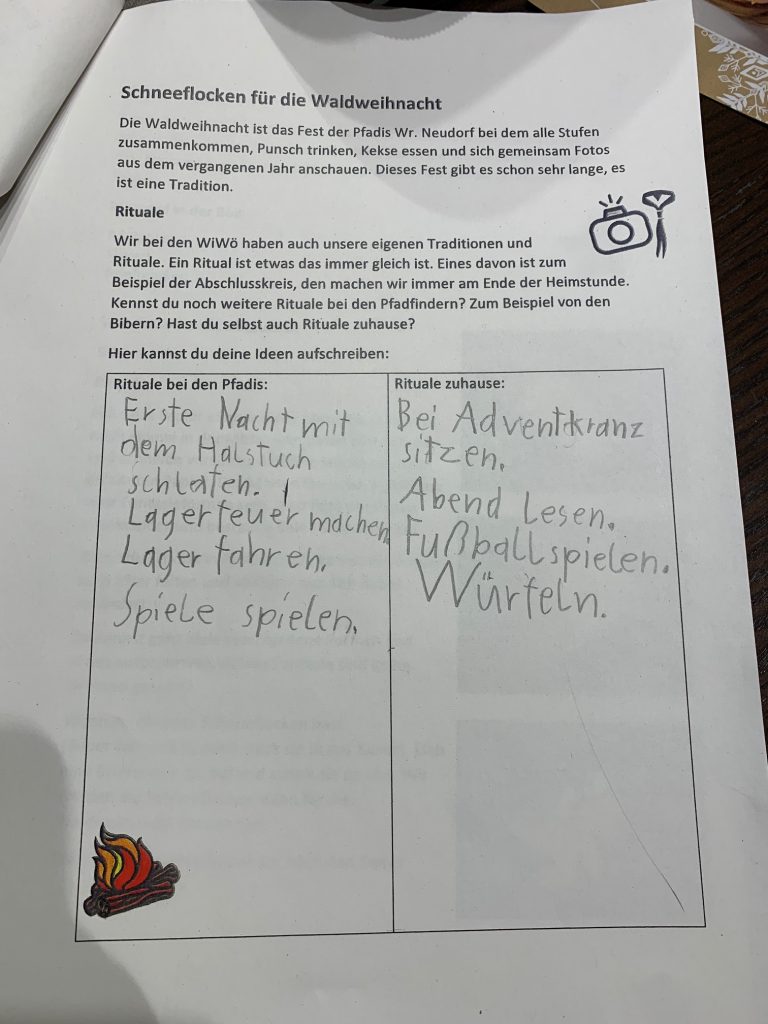 Schneeflocken für die Waldweihnacht
Die Waldweihnacht ist das Fest der Pfadis Wr. Neudorf bei dem alle Stufen
zusammenkommen, Punsch trinken, Kekse essen und sich gemeinsam Fotos
aus dem vergangenen Jahr anschauen. Dieses Fest gibt es schon sehr lange, es
ist eine Tradition.
Rituale
Wir bei den WiWö haben auch unsere eigenen Traditionen und
Rituale. Ein Ritual ist etwas das immer gleich ist. Eines davon ist zum
Beispiel der Abschlusskreis, den machen wir immer am Ende der Heimstunde.
Kennst du noch weitere Rituale bei den Pfadfindern? Zum Beispiel von den
Bibern? Hast du selbst auch Rituale zuhause?
Hier kannst du deine Ideen aufschreiben:
Rituale bei den Pfadis:
Erste Nacht mit
dem Halstuch
schlafen.
Lagerfeuer machen
Lager fahren.
Spiele spielen.
Rituale zuhause:
Bei Adventkranz
sitzen.
Abend Lesen.
Fußballspielen.
Würfeln.